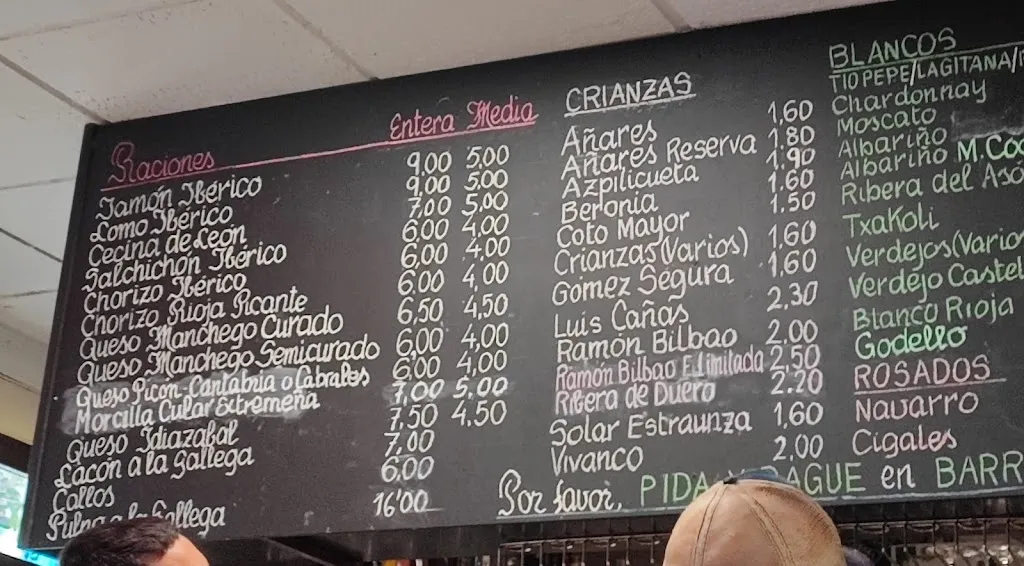 Raciones Entera Media
Jamón Ibérico 9,00 5,00
Lomo Ibérico 9,00 5,00
Cecina de León 7,00 5,00
Salchichón Ibérico 6,00 4,00
Chorizo Ibérico 6,00 4,00
Chorizo Rioja Picante 6,00 4,00
Queso Manchego Curado 6,50 4,50
Queso Manchego Semicurado 6,00 4,00
Queso Picón-Cantabria o Cabrales 6,00 4,00
Morcilla Cular Extremeña 7,00 5,00
Queso Idiazabal 7,50 4,50
Lacón a la gallega 7,00
Callos 6,00
Pulpo a la Gallega 16'00
CRIANZAS
Añares 1,60
Añares Reserva 1,80
Azpilicueta 1,90
Beronia 1.60
Coto Mayor 1.50
Crianzas(Varios) 1,60
Gomez Segura 1,60
Luis Cañas 2.30
Ramón Bilbao 2.00
Ramón Bilbao E.Limitada 2,50
Ribera de Duero 2.20
Solar Estraunza 1,60
Vivanco 2,00
BLANCOS
TIO PEPE/LAGITANA/
Chardonnay
Moscato
Albariño
Albariño M.Coo
Ribera del Aso
TxaKoli
Verdejos(Varios
Verdejo Castel
Blanco Rioja
Godello
ROSADOS
Navarro
Cigales
Por favor, PIDA Y PAGUE en BARR